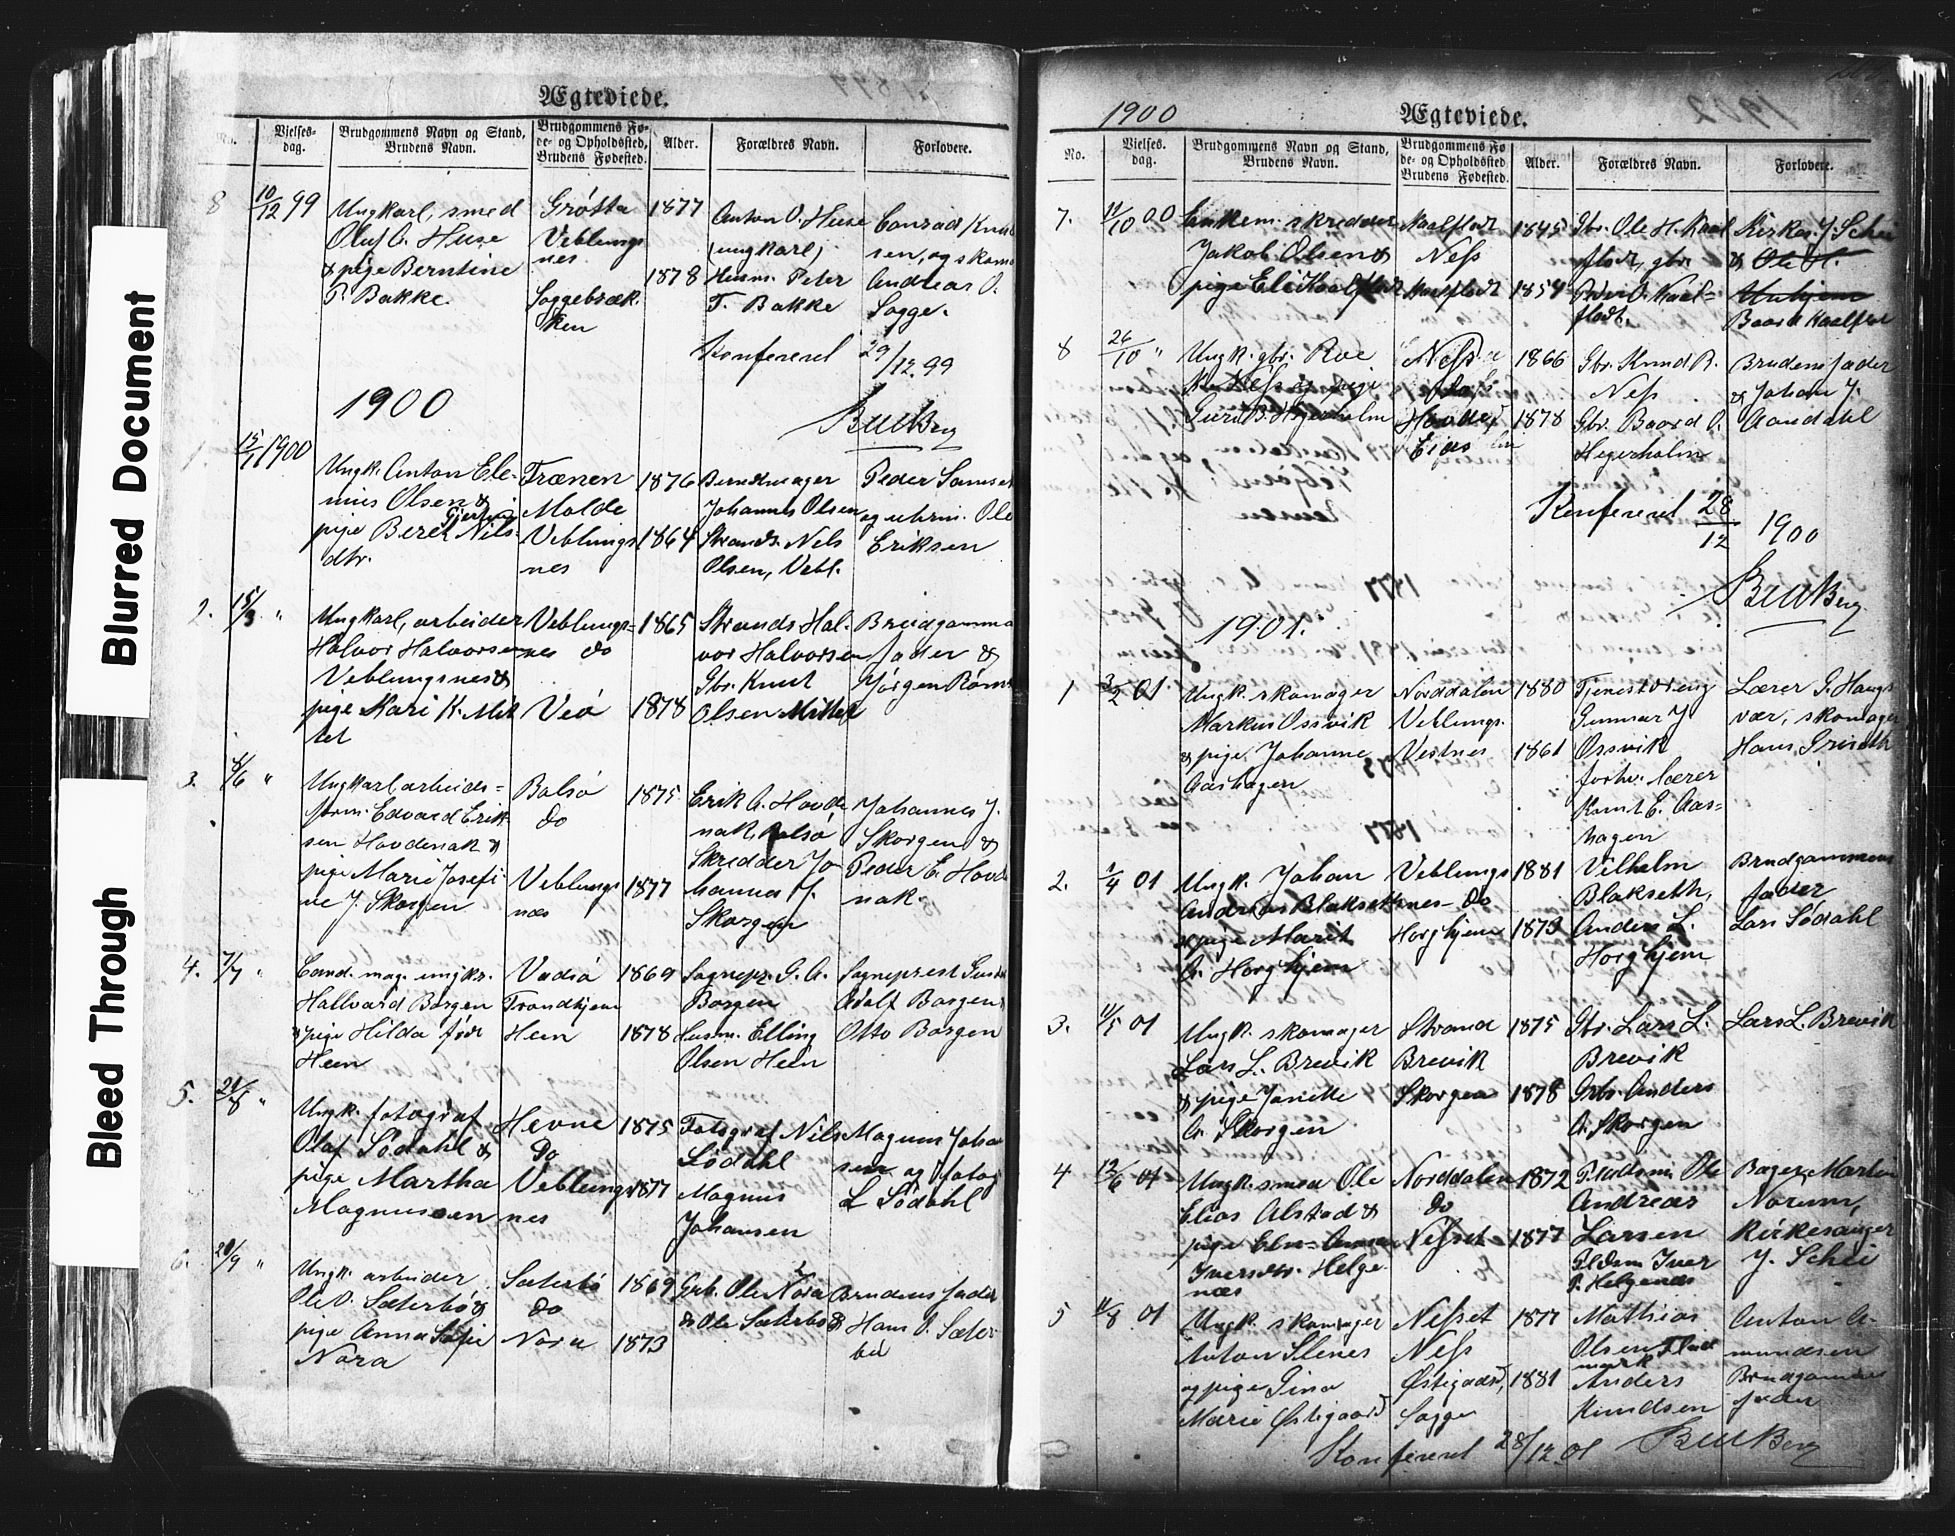 Blurred Document
Bleed Through
Ægteviede.
No.
Vielses-
dag.
Brudgommens Navn og Stand,
Brudens Navn.
Brudgommens Fø-
de- og Opholdssted,
Brudens Fødested.
Alder.
Forældres Navn.
Forlovere.
8
10/12 99
Ungkarl, smed
Oluf A. Huse
& pige Berntine
P. Bakke.
Grøtta
Veblungs
nes
Soggebæk
ken
1877
1878
Anton O. Huse
(ungkarl)
Husm. Peter
T. Bakke
Conrad Knud
sen, og skom
Andreas O.
Sogge.
Konfereret 29/12. 99
1900
1.
15/1 1900
Ungk. Anton Ele-
nius Olsen &
pige Beret Nils
dtr.
Trænen
Molde
Veblungs
nes
1876
1864
Johannes Olsen
Strands. Nels
Olsen, Vebl.
Peder Samset
og uhrm. Ole
Eriksen
2.
15/3 "
Ungkarl, arbeider
Halvor Halvorsen
Veblungsnes &
pige Kari K. Mit
tet
Veblungs-
nes do
Veø
1865
1878
Strands. Hal-
vor Halvorsen
Gbr. Knut
Olsen Mittet
Brudgomme
fader &
Jørgen Røms
3.
8/6 "
Ungkarl arbeids-
form. Edvard Erik
sen Hovdenak &
pige Marie Josefi-
ne J. Skorgen
Bolsø
do
Veblungs
næs
1875
1877
Erik A. Hovde
nak, Bolsø
Skredder Jo
hannes J.
Skorgen
Johannes J.
Skorgen &
Peder E. Hovde
nak.
4.
7/7 "
Cand. mag. ungkr.
Hallvard Borgen
& pige Hilda født
Heen
Vadsø
Trondhjem
Heen
1869
1878
Sognepr. G. A.
Borgen
Husm. Elling
Olsen Heen
Sogneprest Gust
Adolf Borgen
Otto Borgen
5.
21/8 "
Ungk. fotograf
Olaf Sødahl &
pige Martha
Magnussen
Hevne
Do
Veblungs
nes
1875
1877
Fotograf Nils
Sødahl
Magnus
Johansen
Magnus Johan
sen og fotog
L Sødahl
6.
20/9 "
Ungk. arbeider
Ole O. Sæterbø &
pige Anna Sofie
Nora
Sæterbø
do
Nora
1869
1873
Gbr. Ole Nora
& Ole Sæterbø
Brudens fader
& Hans O. Sæter
bø
1900
Ægteviede.
No.
Vielses-
dag.
Brudgommens Navn og Stand,
Brudens Navn.
Brudgommens Fø
de- og Opholdssted
Brudens Fødested.
Alder.
Forældres Navn.
Forlovere.
7.
11/10 00
Enkem. skredder
Jakob Olsen &
pige Eli Kaalflot
Kaalflot
Ness
Kaalflot
1845
1854
Gbr. Ole H. Kaal
flot, gbr.
Peder O. Kaal-
flot.
Kirkes. J. Schei
& Ole H.
Unhjem
Baard Kaalflot
8
26/10 "
Ungk. gbr. Roe
K. Ness og pige
Guri B. Hegerholm
Ness
Do
1866
1878
Gbr. Knud R.
Ness
Gbr. Baard O.
Hegerholm
Brudens fader
& Johan J.
Aandahl
Konfereret 28/12 1900
1901.
1
3/2 01
Ungk. skomager
Markus Ossvik
& pige Johanne
Aashagen
Norddalen
Veblungs.
Vestnes
1880
1861
Tjenestdreng
Gunnar J
Ossvik
forhv. lærer
Knut E. Aas-
hagen
Lærer P. Haugs
vær, skomager
Hans Griseth
2.
1/4 01
Ungk. Johan
Andreas Blakseth
& pige Marit
A. Horghjem
Veblungs
nes - Do
Horghjem
1881
1873
Vilhelm
Blakseth,
Anders L.
Horghjem
Brudgommens
fader
Lars Sødahl
3.
11/5 01
Ungk. skomager
Lars L. Brevik
& pige Janette
A. Skorgen
Strand
Brevik
Skorgen
1875
1878
Gbr. Lars L.
Brevik
Gbr. Anders
A. Skorgen
Lars L. Brevik
4
12/6 01
Ungk. smed Ole
Elias Alstad &
pige
Iversdtr. Helge
næs
Norddalen
do
Nesset
1872
1877
Ole
Andreas
Larsen
Iver
P. Helgenæs
Bager Martin
Norum,
Kirkesanger
J. Schei
5
11/8 01
Ungk. skomager
Anton Stenes
og pige Gina
Marie Østigaard
Nesset
Ness
Østigaard,
Sogge
1877
1881
Mathias
Olsen Flad
mark
Anders
Knudsen
Anton A-
mundsen
Brudgommens
fader
Konfereret 28/12 01